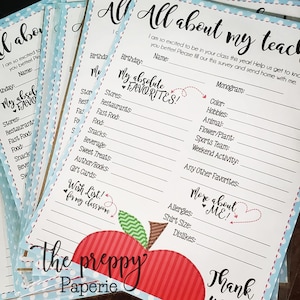 All about my teach
I am so excited to be in your class this year! Help us get to know
you better! Please fill out this survey and send home with me.
Birthday:
Name:
Monogram:
My absolute
FAVORITES!
Stores:
Restaurants:
Fast Food:
Food:
Snacks:
Beverage:
Sweet Treats:
Author/Books:
Gift Cards:
Color:
Hobbies:
Animal:
Flower/Plant:
Sports Team:
Weekend Activity:
Any Other Favorites:
Wish List!
for my classroom
More about
ME!
Allergies:
Shirt Size:
Dislikes:
Thank
the preppy
Paperie